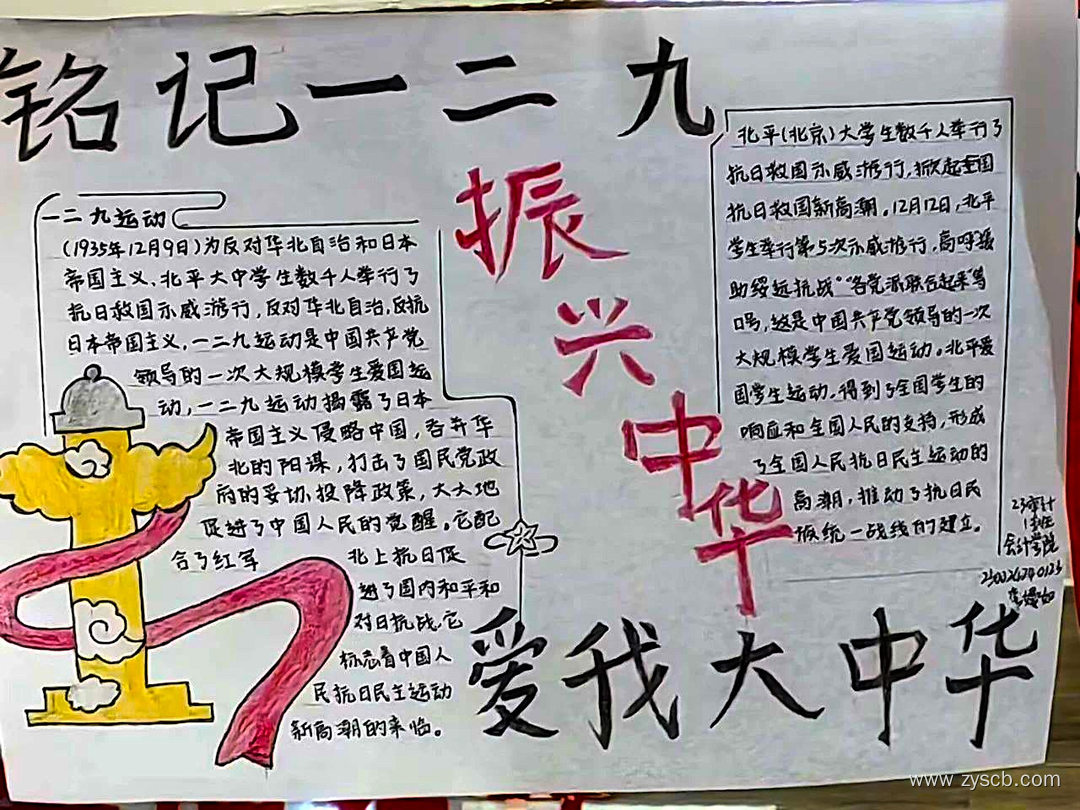 铭记一二九
振兴中华
一二九运动
(1935年12月9日)为反对华北自治和日本
帝国主义,北平大中学生数千人举行了
抗日救国示威游行,反对华北自治,反抗
日本帝国主义,一二九运动是中国共产党
领导的一次大规模学生爱国运
动,一二九运动揭露了日本
帝国主义侵略中国,吞并华
北的阴谋,打击了国民党政
府的妥协、投降政策,大大地
促进了中国人民的觉醒。它配
合了红军 北上抗日促
进了国内和平和
对日抗战,它
标志着中国人
民抗日民主运动
新高潮的来临。
北平(北京)大学生数千人举行了
抗日救国示威游行,掀起全国
抗日救国新高潮。12月12日,北平
学生举行第5次示威游行,高呼援
助绥远抗战""各党派联合起来"等
口号,这是中国共产党领导的一次
大规模学生爱国运动。北平爱
国学生运动,得到了全国学生的
响应和全国人民的支持,形成
了全国人民抗日民主运动的
高潮,推动了抗日民
族统一战线的建立。
23审计
1班
会计学院
爱我大中华
www.zyscb.com